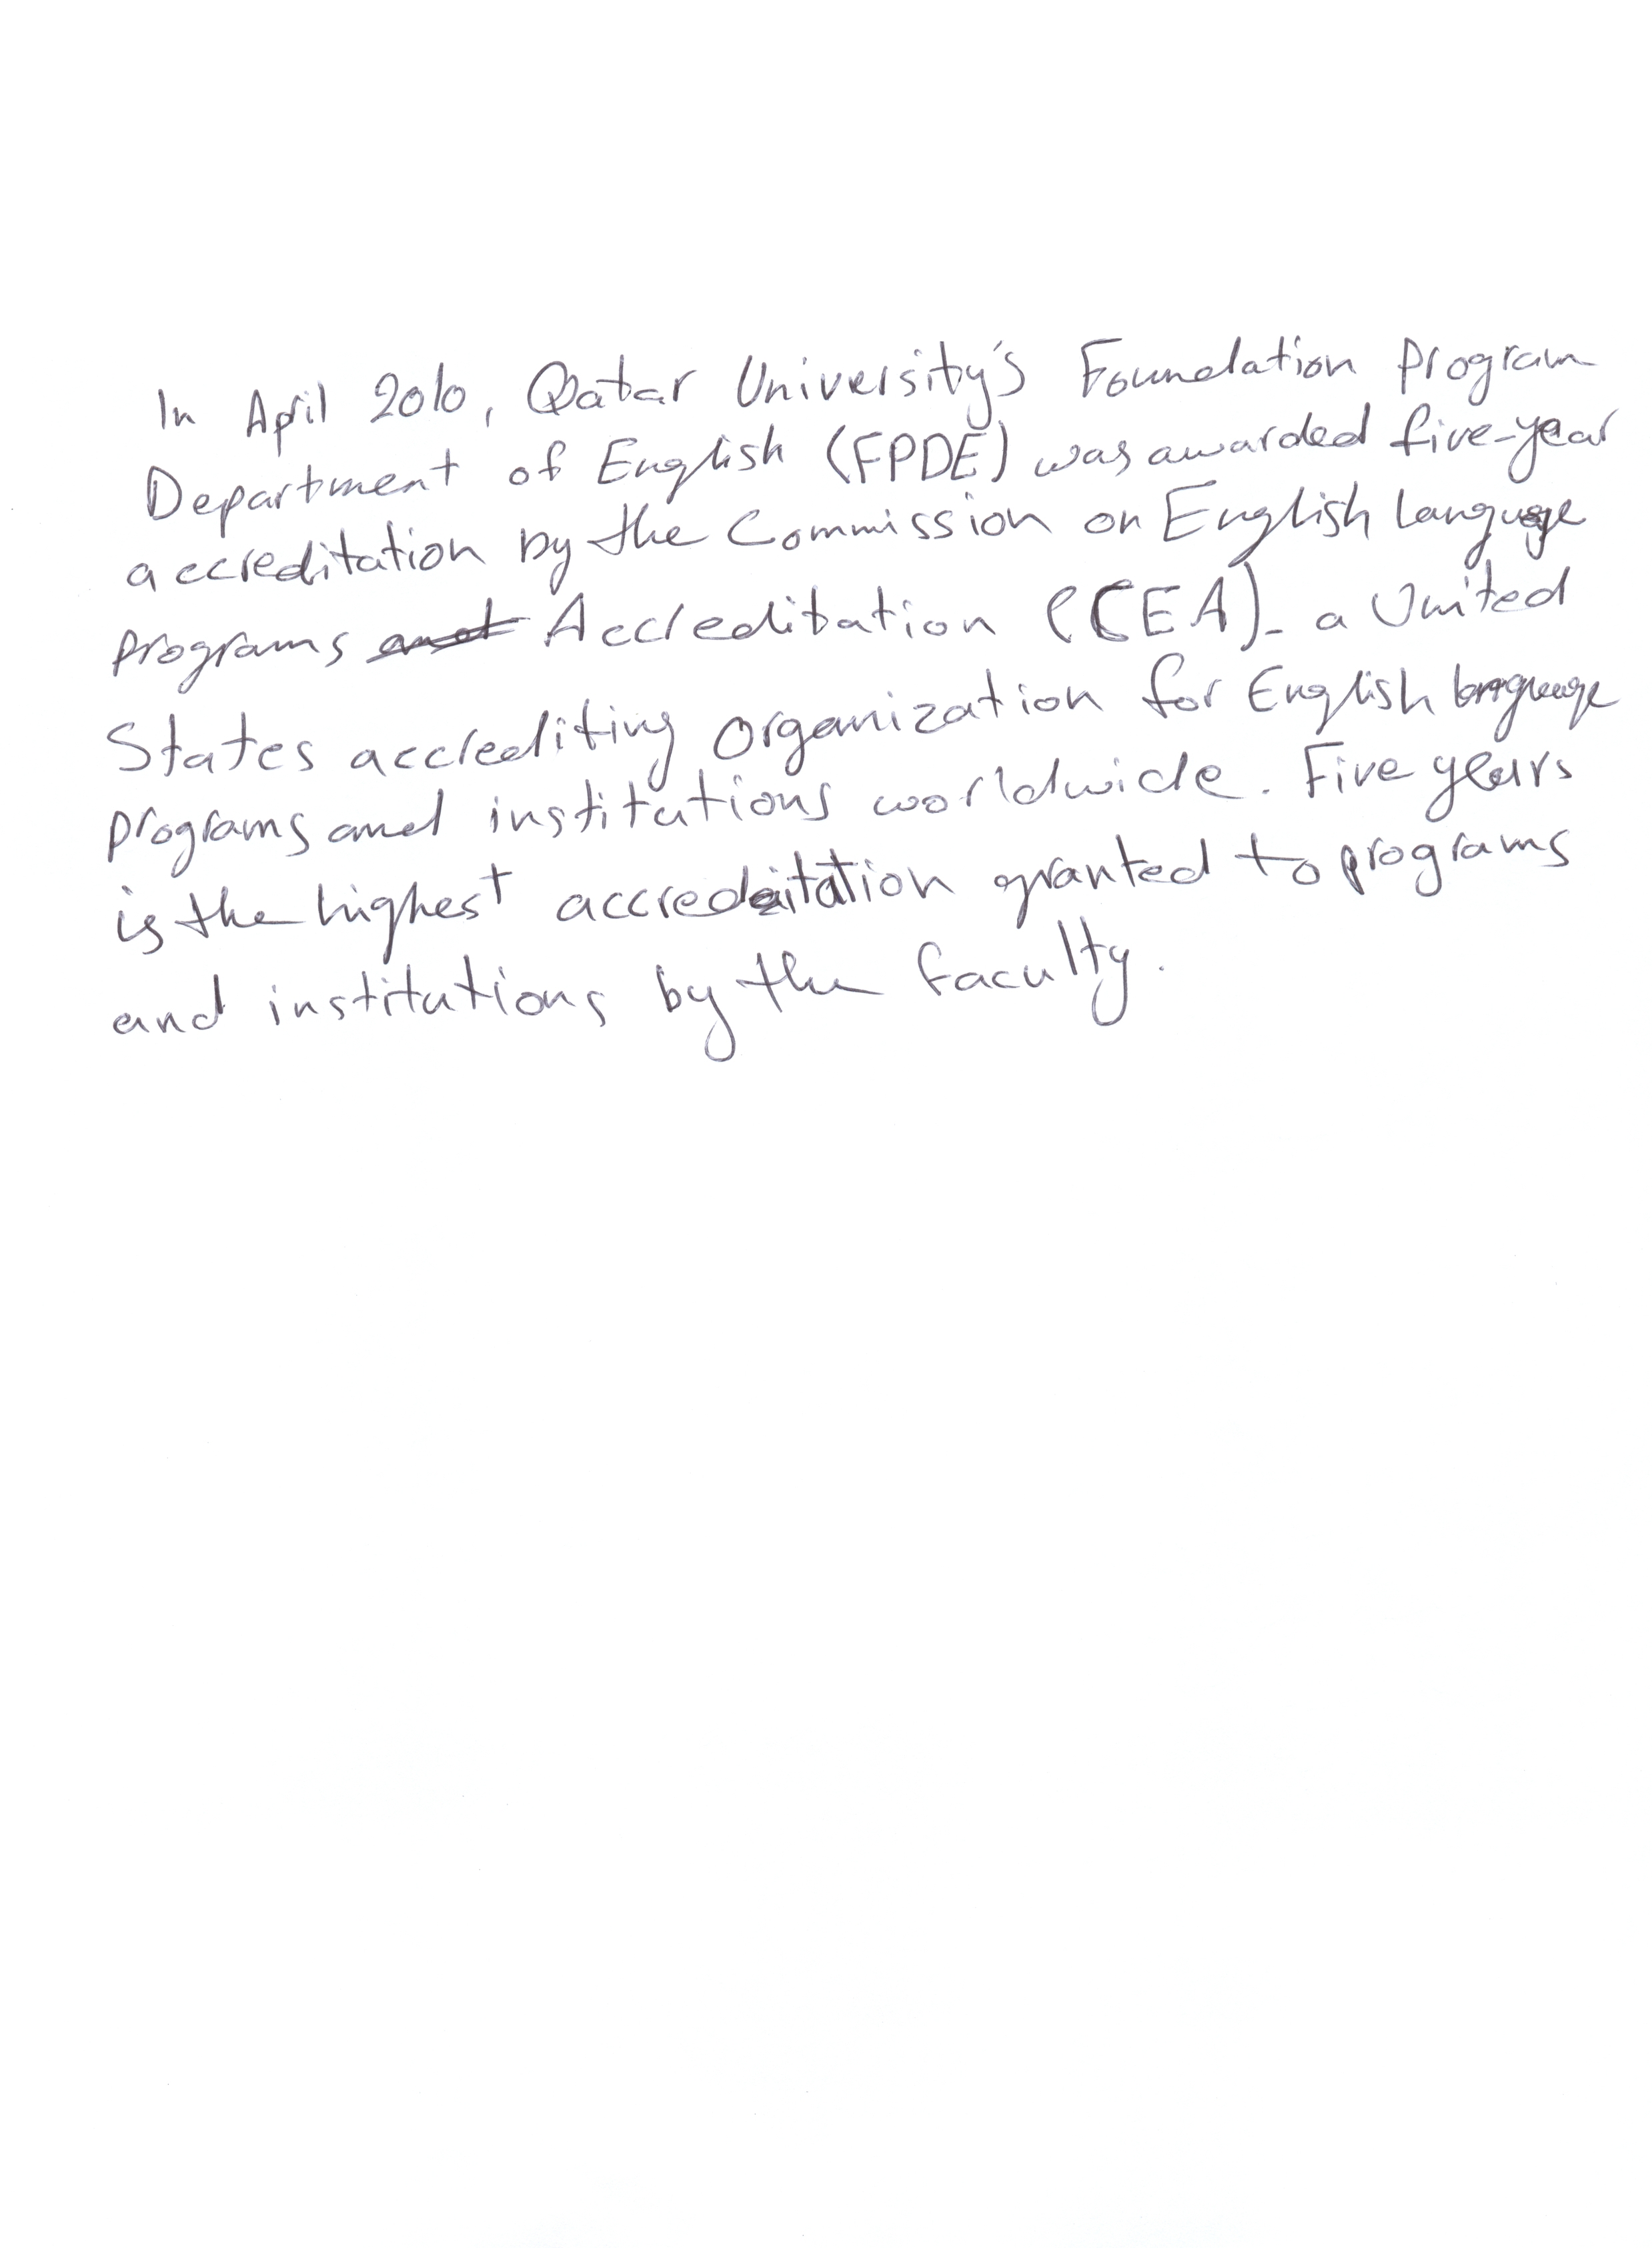 In April 2010, Qatar University's Foundation Program
Department of English (FPDE) was awarded five-year
accreditation by the Commission on English language
programs Accreditation (CEA)- a United
States accrediting organization for English language
programs and institutions worldwide. Five years
is the highest accreditation granted to programs
and institutions by the faculty.